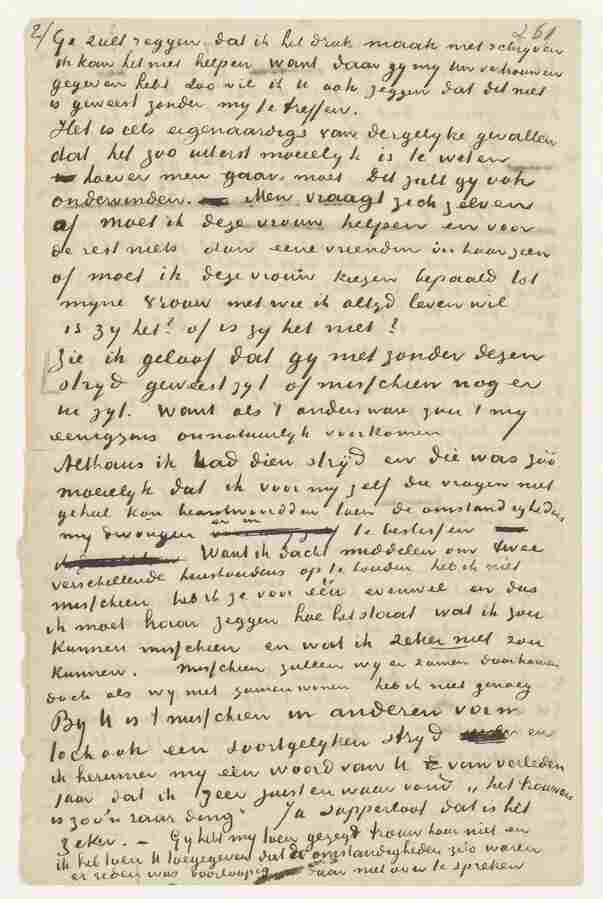 2/ 261
Ge zult zeggen dat ik het druk maak met schryven
ik kan het niet helpen want daar gy my Uw vertrouwen
gegeven hebt zoo wil ik U ook zeggen dat dit niet
is geweest zonder my te treffen.
Het is iets eigenaardigs van dergelyke gevallen
dat het zoo uiterst moeielyk is te weten
hoever men gaan moet. Dit zult gy ook
ondervinden. Men vraagt zich zelven
of moet ik deze vrouw helpen en voor
de rest niets dan eene vriendin in haar zien
of moet ik deze vrouw kiezen bepaald tot
myne vrouw met wie ik altyd leven wil
is zy het? of is zy het niet?
Zie ik geloof dat gy niet zonder dezen
stryd geweest zyt of misschien nog er
in zyt. Want als 't anders ware zou 't my
eenigzins onnatuurlyk voorkomen
Althans ik had dien stryd en die was zóó
moeielyk dat ik voor my zelf die vragen niet
geheel kon beantwoorden toen de omstandigheden
my dwongen er in te beslissen
Want ik dacht middelen om twee
verschillende huishoudens op te houden heb ik niet
misschien heb ik ze voor één evenwel en dus
ik moet haar zeggen hoe het staat wat ik zou
kunnen misschien en wat ik zeker niet zou
kunnen. Misschien zullen wy er zamen doorkomen
doch als wy niet samenwonen heb ik niet genoeg
By U is 't misschien in anderen vorm
toch ook een soortgelyken stryd en
ik herinner my een woord van U van verleden
jaar dat ik zeer juist en waar vond „het trouwen
is zoo'n raar ding" Ja sapperloot dat is het
zeker. – Gy hebt my toen gezegd trouw haar niet en
ik heb toen U toegegeven dat de omstandigheden zóó waren
er reden was voorloopig daar niet over te spreken